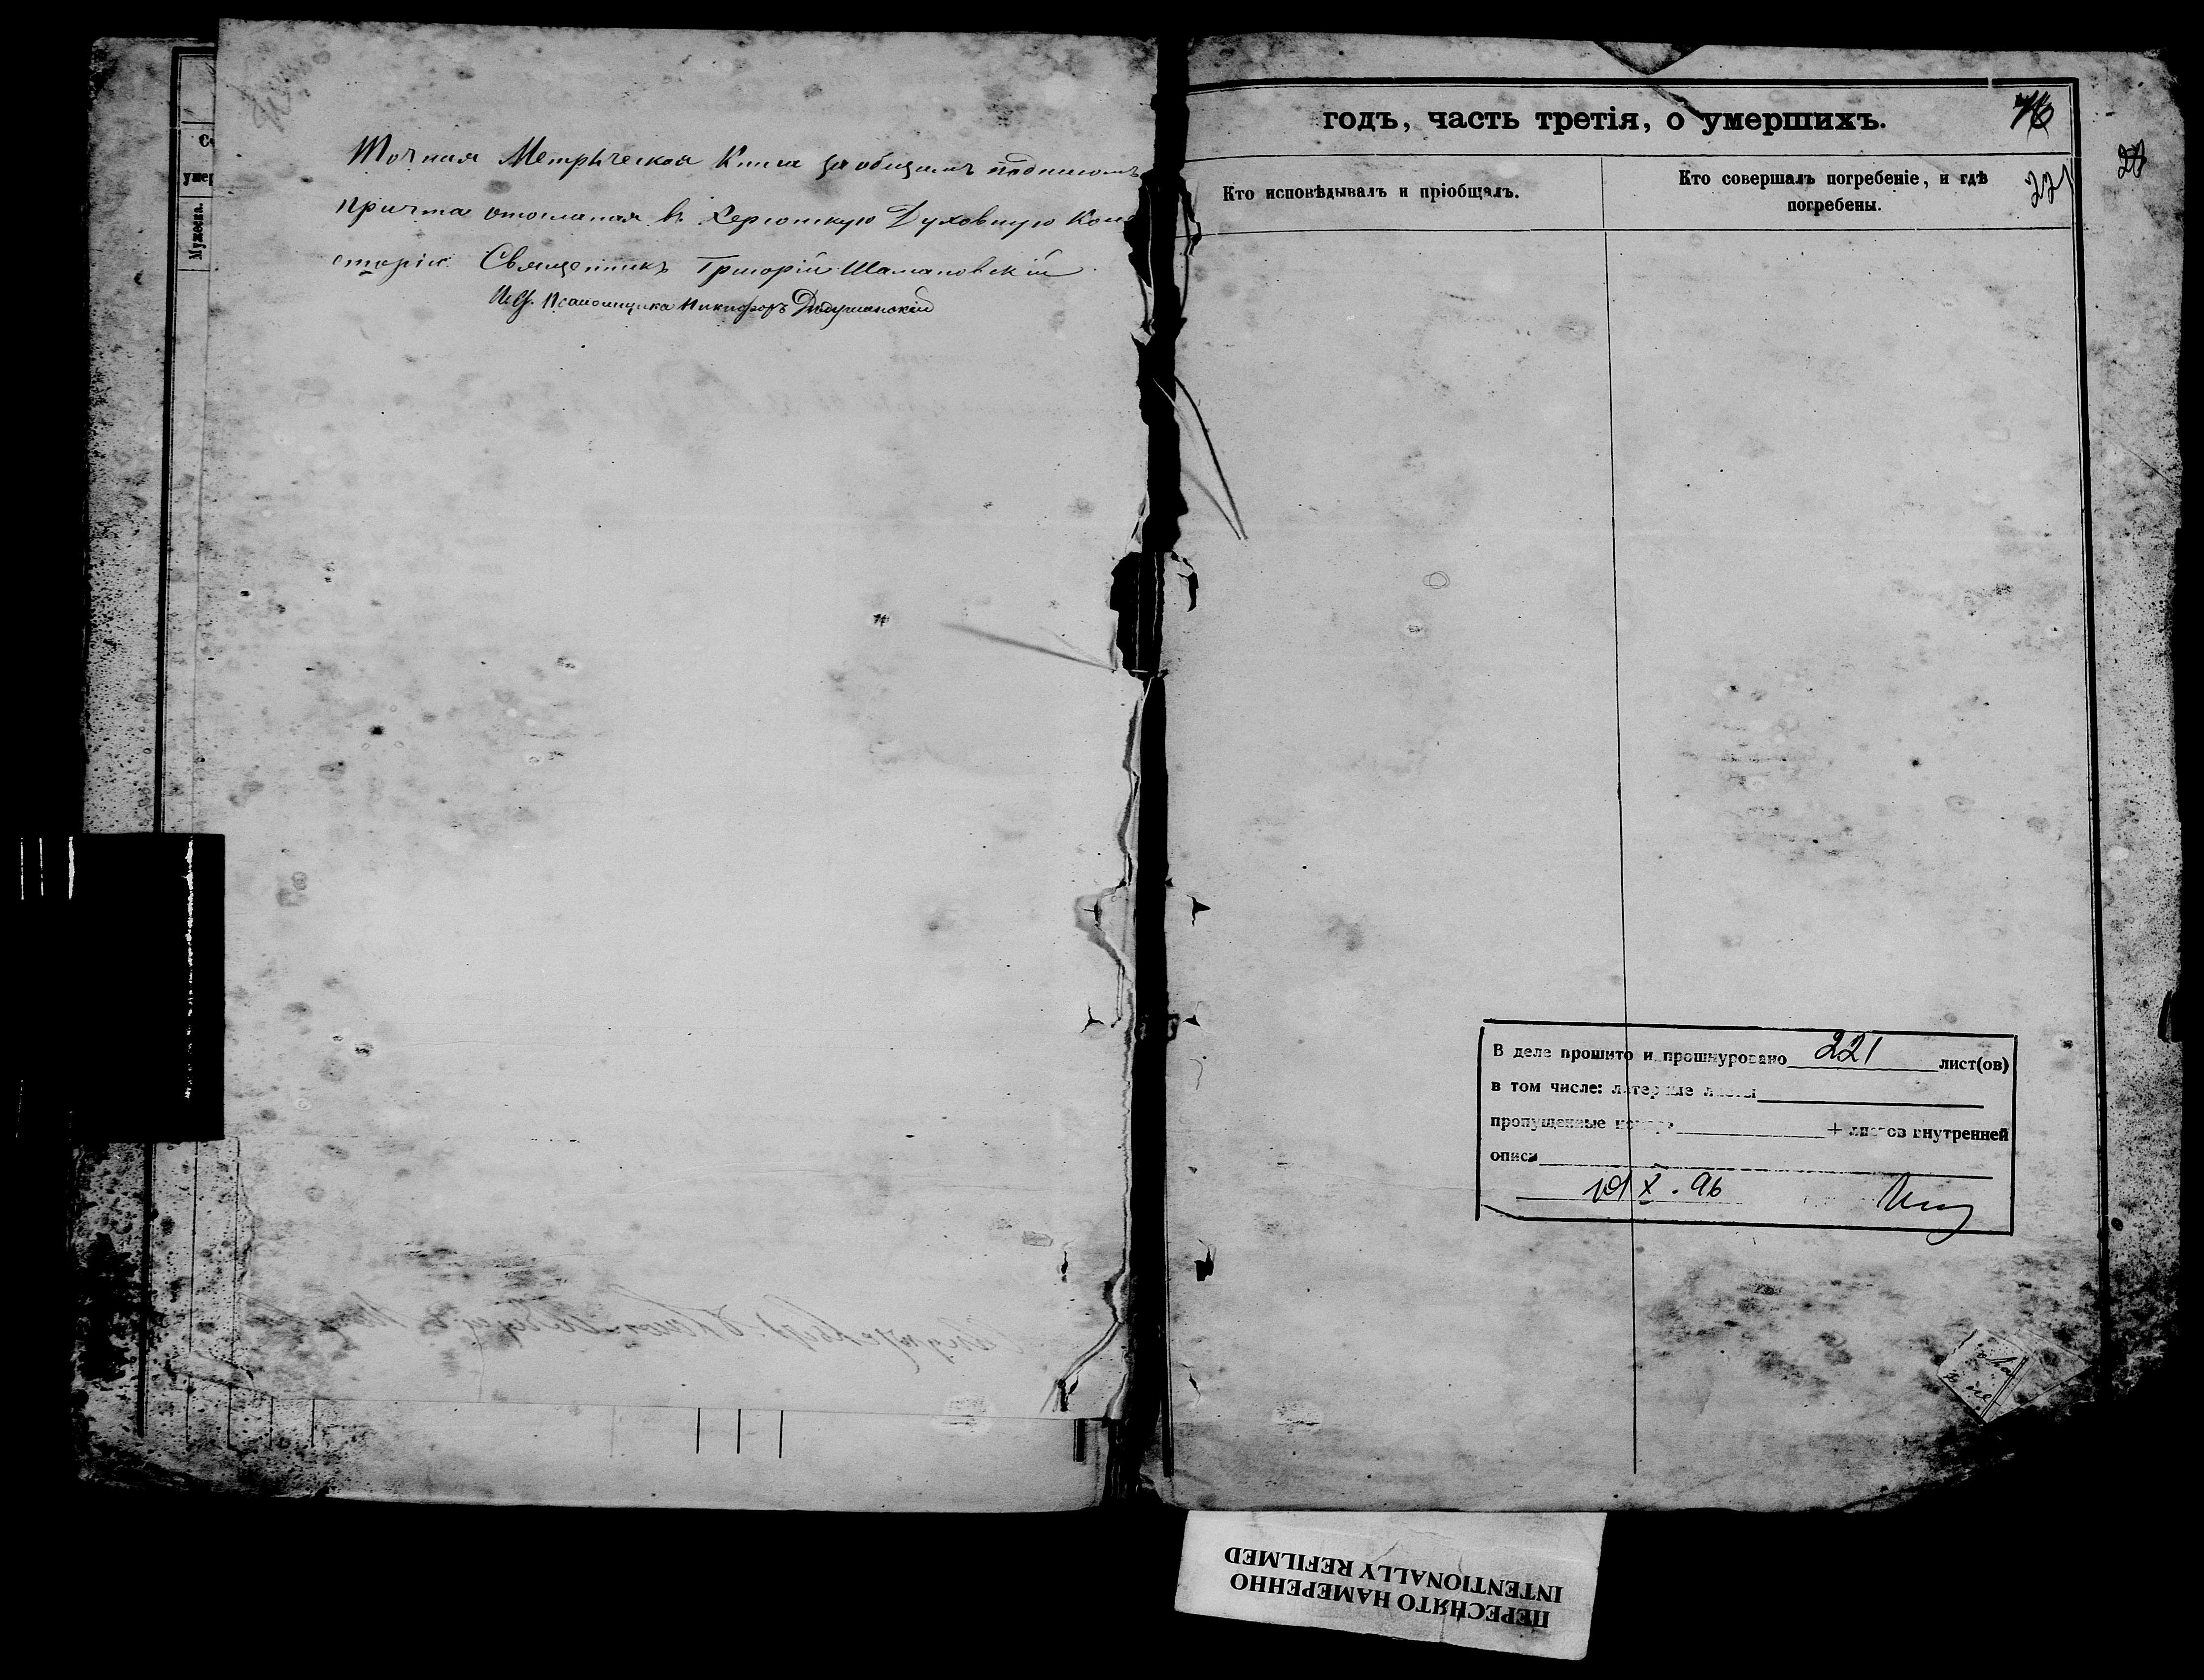 Точная Метрическая Книга за общимъ подписомъ
причта отослана въ Херсонскую Духовную Кон
систорію. Священникъ Григорій
И. д. Псаломщика Никифоръ
Мужеска.
годъ, часть третія, о умершихъ.
Кто исповѣдывалъ и пріобщалъ.
Кто совершалъ погребеніе, и гдѣ
погребены.
221
В деле прошито и прошнуровано 221 лист(ов)
в том числе: литерные листы
пропущенные номера + листов внутренней
описи
X. 96
ПЕРЕСНЯТО НАМЕРЕННО
INTENTIONALLY REFILMED